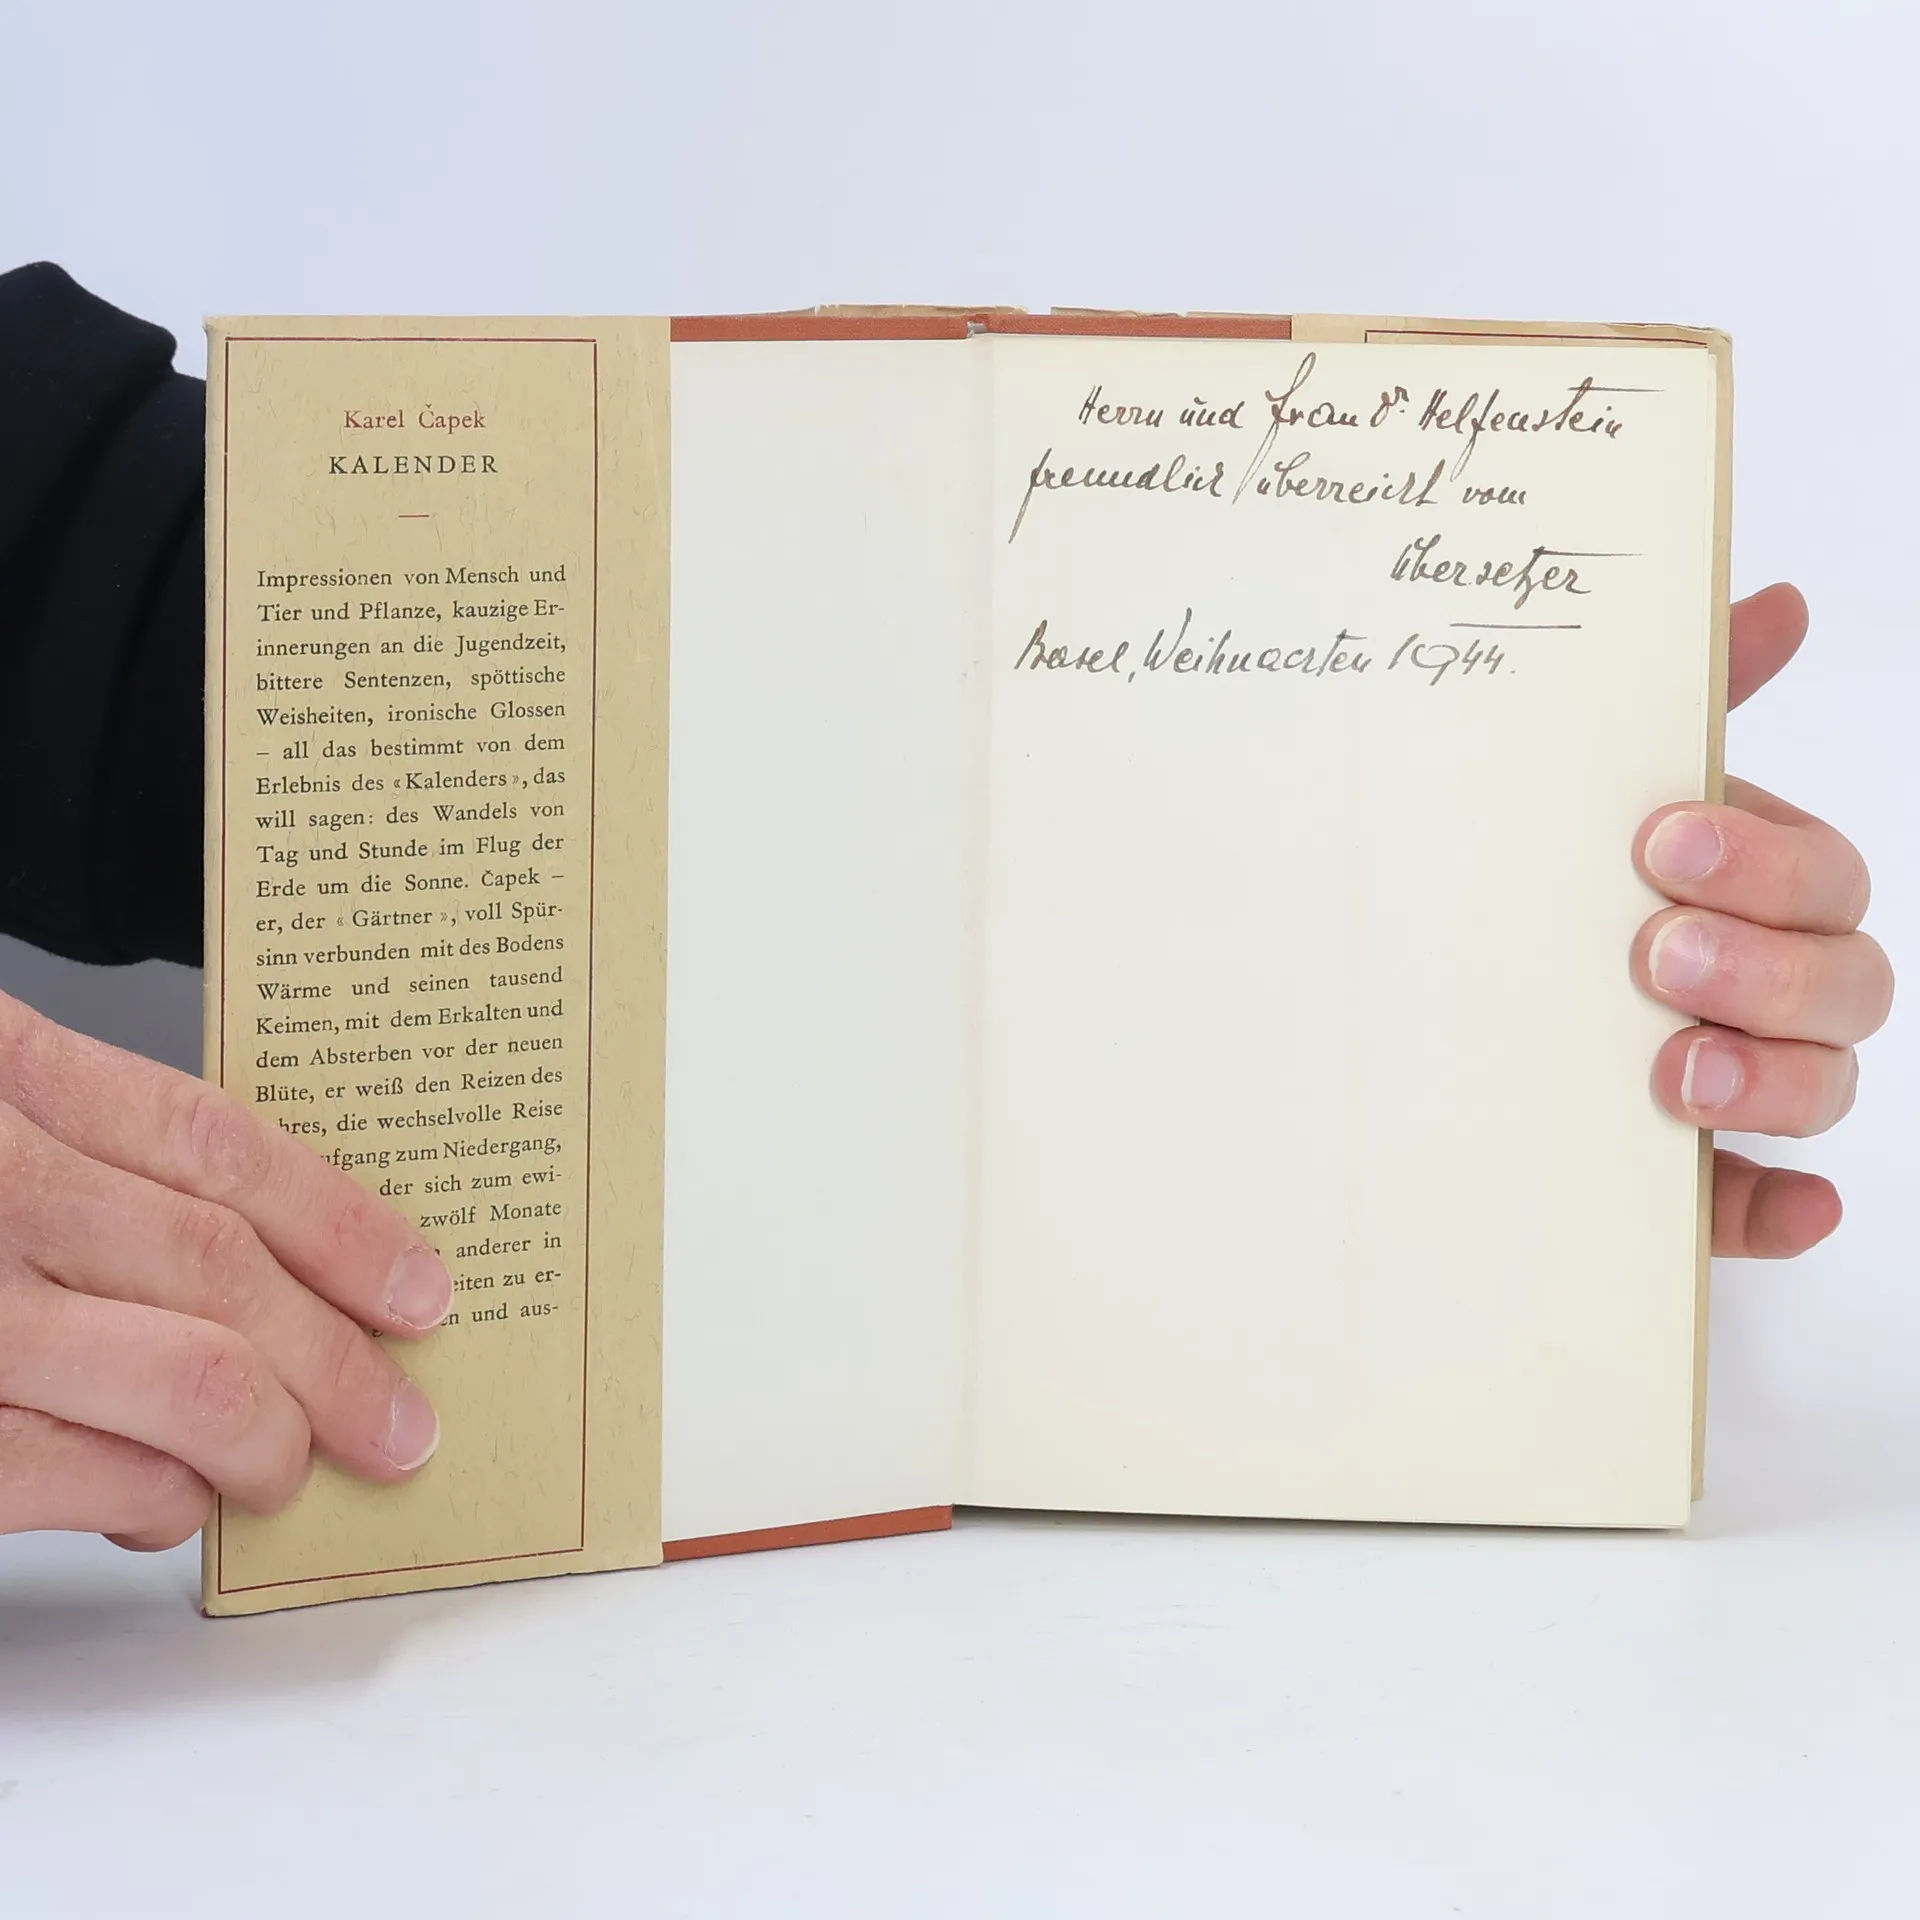 Karel Čapek
KALENDER
Impressionen von Mensch und
Tier und Pflanze, kauzige Er-
innerungen an die Jugendzeit,
bittere Sentenzen, spöttische
Weisheiten, ironische Glossen
– all das bestimmt von dem
Erlebnis des «Kalenders», das
will sagen: des Wandels von
Tag und Stunde im Flug der
Erde um die Sonne. Čapek –
er, der «Gärtner», voll Spür-
sinn verbunden mit des Bodens
Wärme und seinen tausend
Keimen, mit dem Erkalten und
dem Absterben vor der neuen
Blüte, er weiß den Reizen des
hres, die wechselvolle Reise
ufgang zum Niedergang,
der sich zum ewi-
zwölf Monate
anderer in
eiten zu er-
en und aus-
Herrn und Frau Dr. Helfenstein
freundlich überreicht vom
Übersetzer
Basel, Weihnachten 1944.